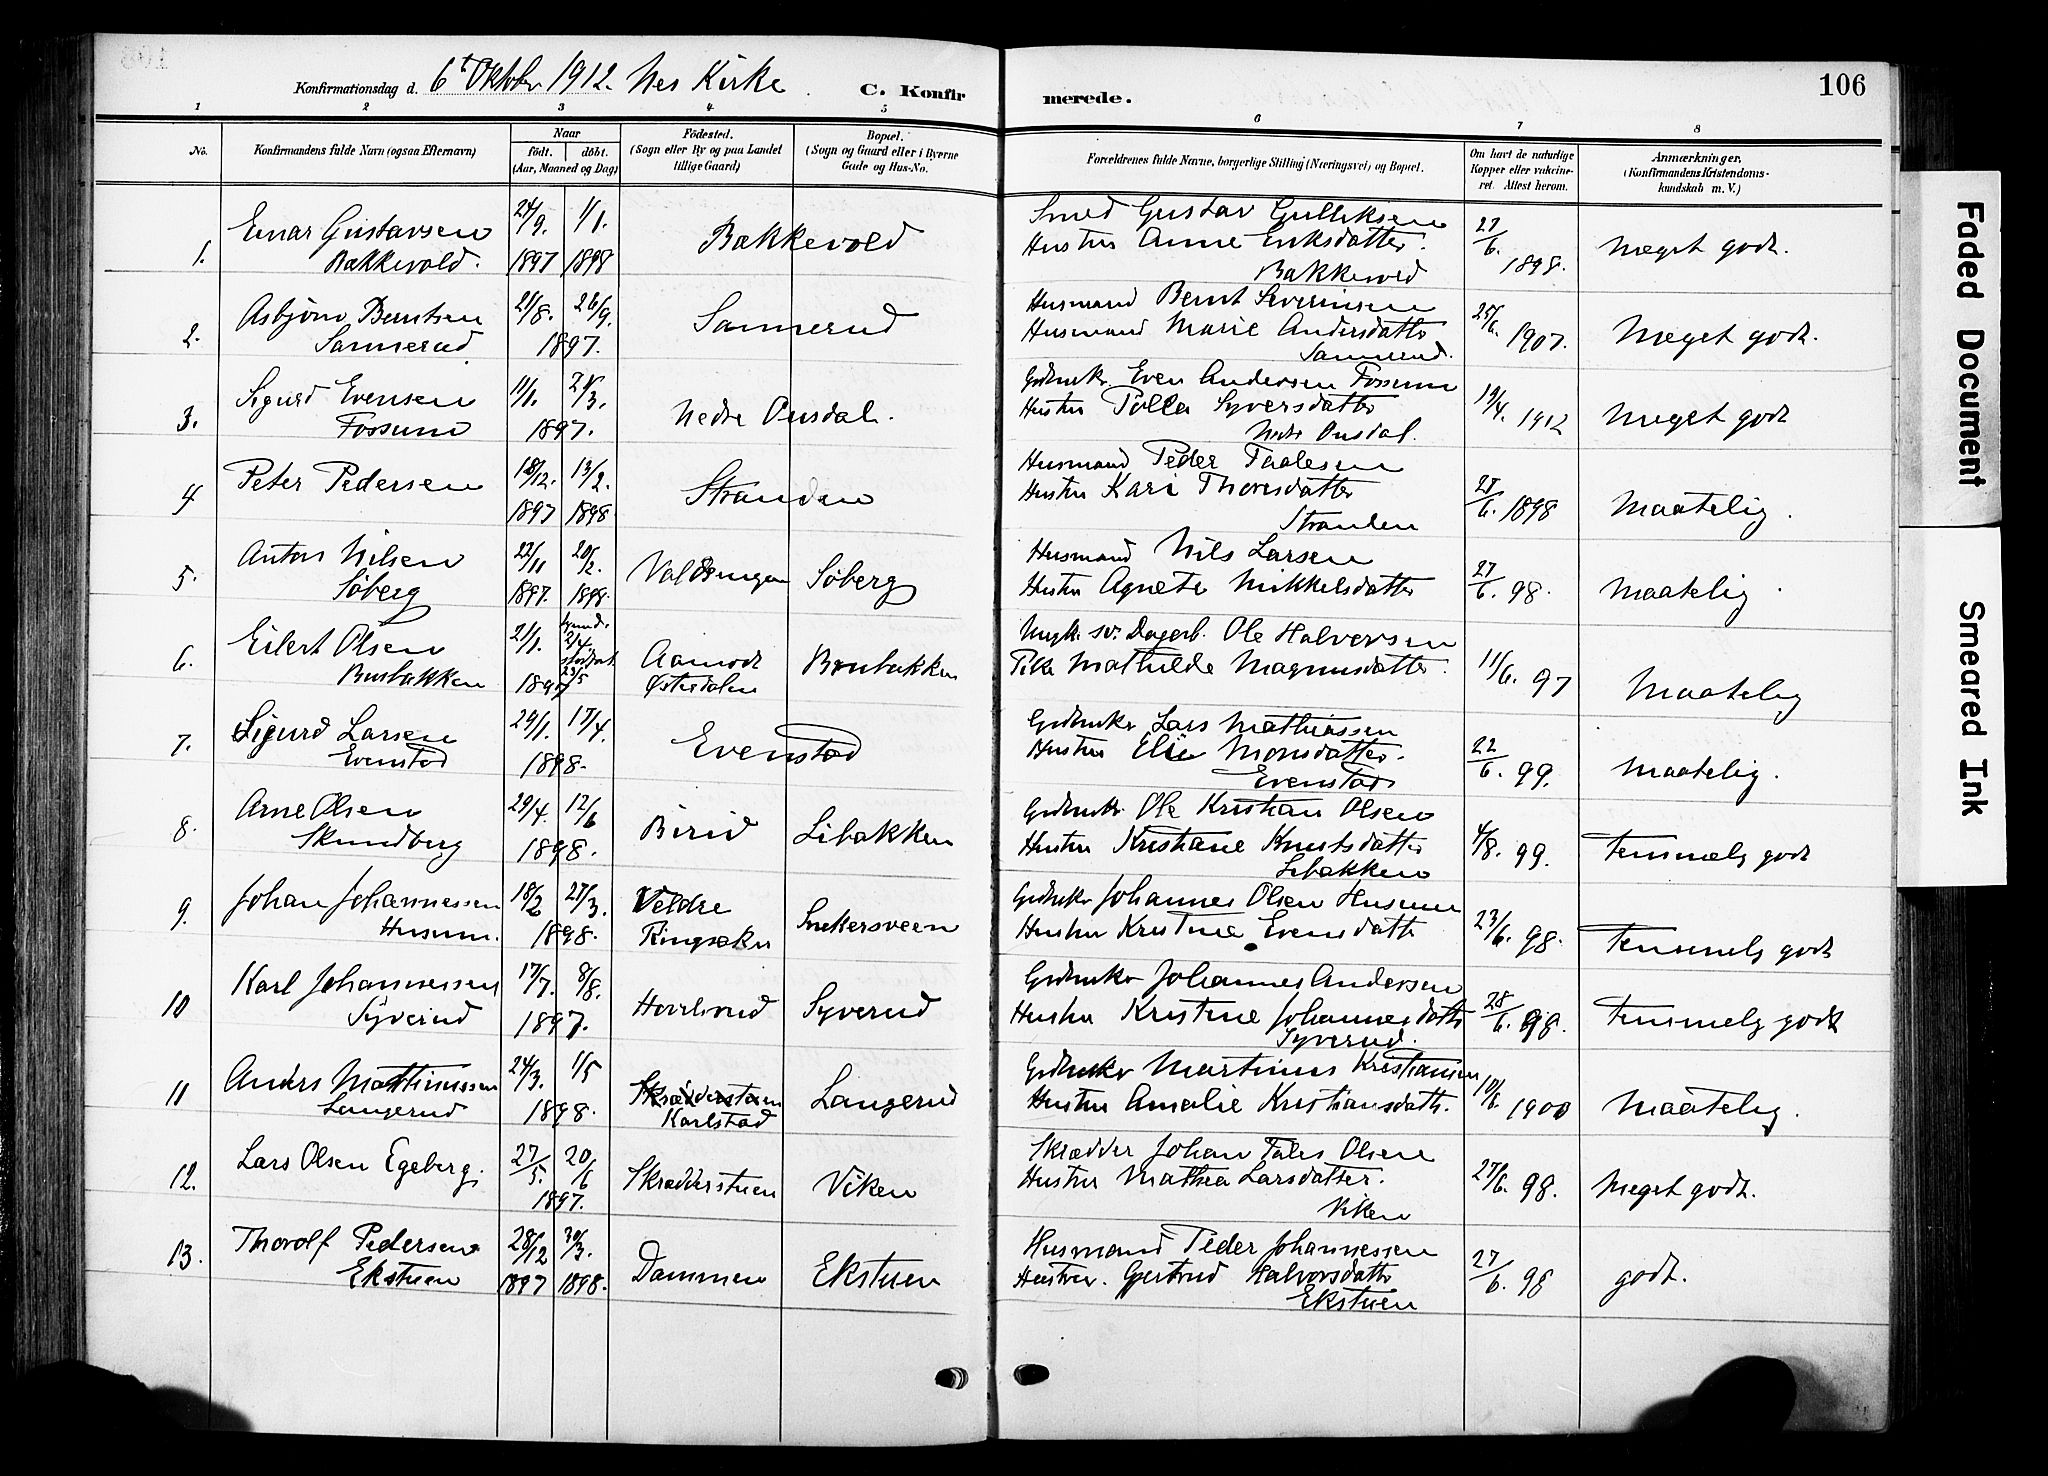 106
Konfirmationsdag d. 6te Oktober 1912. Nes Kirke
C. Konfirmerede.
1 2 3 4 5 6 7 8
No.
Konfirmandens fulde Navn (ogsaa Efternavn)
Naar
födt. döbt.
(Aar, Maaned og Dag)
Födested.
(Sogn eller By og paa Landet
tillige Gaard)
Bopæl.
(Sogn og Gaard eller i Byerne
Gade og Hus-No.
Forældrenes fulde Navne, borgerlige Stilling (Næringsvei) og Bopæl.
Om havt de naturlige
Kopper eller vakcine-
ret. Attest herom.
Anmærkninger,
(Konfirmandens Kristendoms-
kundskab m. V.)
1. Einar Gustavsen
Bakkevold.
24/9. 1897
1/1. 1898
Bakkevold
Smed Gustav Gulliksen
Hustru Anne Eriksdatter.
Bakkevold
27/6. 1898.
Meget godt.
2. Asbjørn Berntsen
Sannerud
21/8. 26/9.
1897.
Sannerud
Husmand Bernt Severinsen
Husmand Marie Andersdatter
Sannerud.
25/6. 1907.
Meget godt.
3. Sigurd Evensen
Fossum
11/1. 21/3.
1897.
Nedre Onsdal.
Gdbruker Even Andersen Fossum
Hustru Polla Syversdatter
Nedre Onsdal.
19/4. 1912
Meget godt
4 Peter Pedersen
18/12. 1897
13/2. 1898
Stranden
Husmand Peder Paalesen
Hustru Kari Thoresdatter
Stranden
27/6. 1898
Maatelig.
5. Anton Nilsen
Søberg
22/11 1897.
20/2. 1898.
Søberg
Husmand Nils Larsen
Hustru Agnete Mikkelsdatter
27/6. 98.
Maatelig.
6. Eilert Olsen
Brubakken
21/1.
1897
Aamodt
Østerdalen
Brubakken
Ungk. sv. Dagarb. Ole Halvorsen
Pike Mathilde Magnusdatter.
11/6. 97
Maatelig
7. Sigurd Larsen
Evenstad
29/1. 17/4.
1898.
Evenstad
Gdbruker Lars Mathiassen
Hustru Elie Monsdatter.
Evenstad
22/6. 99.
Maatelig.
8. Arne Olsen
Skundberg
29/4. 12/6
1898.
Birid
Libakken
Gdbruker Ole Kristian Olsen
Hustru Kristiane Knutsdatter
Libakken
4/8. 99.
Temmelig godt
9. Johan Johannessen
Husum.
18/2 27/3.
1898.
Veldre
Ringsaker
Snekersveen
Gdbruker Johannes Olsen Husum
Hustru Kristine Evensdatter
23/6. 98.
Temmelig godt
10 Karl Johannessen
Syverud
17/7. 8/8.
1897.
Syverud
Gdbruker Johannes Andersen
Hustru Kristine Johannesdatter
Syverud.
28/6. 98.
Temmelig godt
11 Anders Martinussen
Langerud
24/3. 1/5
1898.
Skrædderstuen
Karlstad
Langerud
Gdbruker Martinus Kristiansen
Hustru Amalie Kristiansdatter.
10/8. 1900
Maatelig.
12. Lars Olsen Egeberg.
27/5. 20/6
1897.
Skrædderstuen
Viken
Skrædder Johan Pales Olsen
Hustru Mathea Larsdatter.
Viken
27/6. 98.
Meget godt.
13. Thorolf Pedersen
Ekstuen
28/12 1897
30/3. 1898.
Dammen
Ekstuen
Husmand Peder Johannessen
Hustru. Gjertrud Halvorsdatter
Ekstuen
27/6. 98
godt.
Faded Document
Smeared Ink